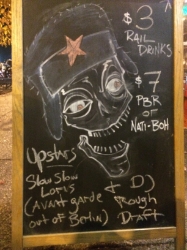 $3
RAIL
DRINKS
$7
PBR
OR
NATI-BOH
Upstairs
Slow Slow
Loris & DJ
(Avant garde Rough
out of Berlin) Draft